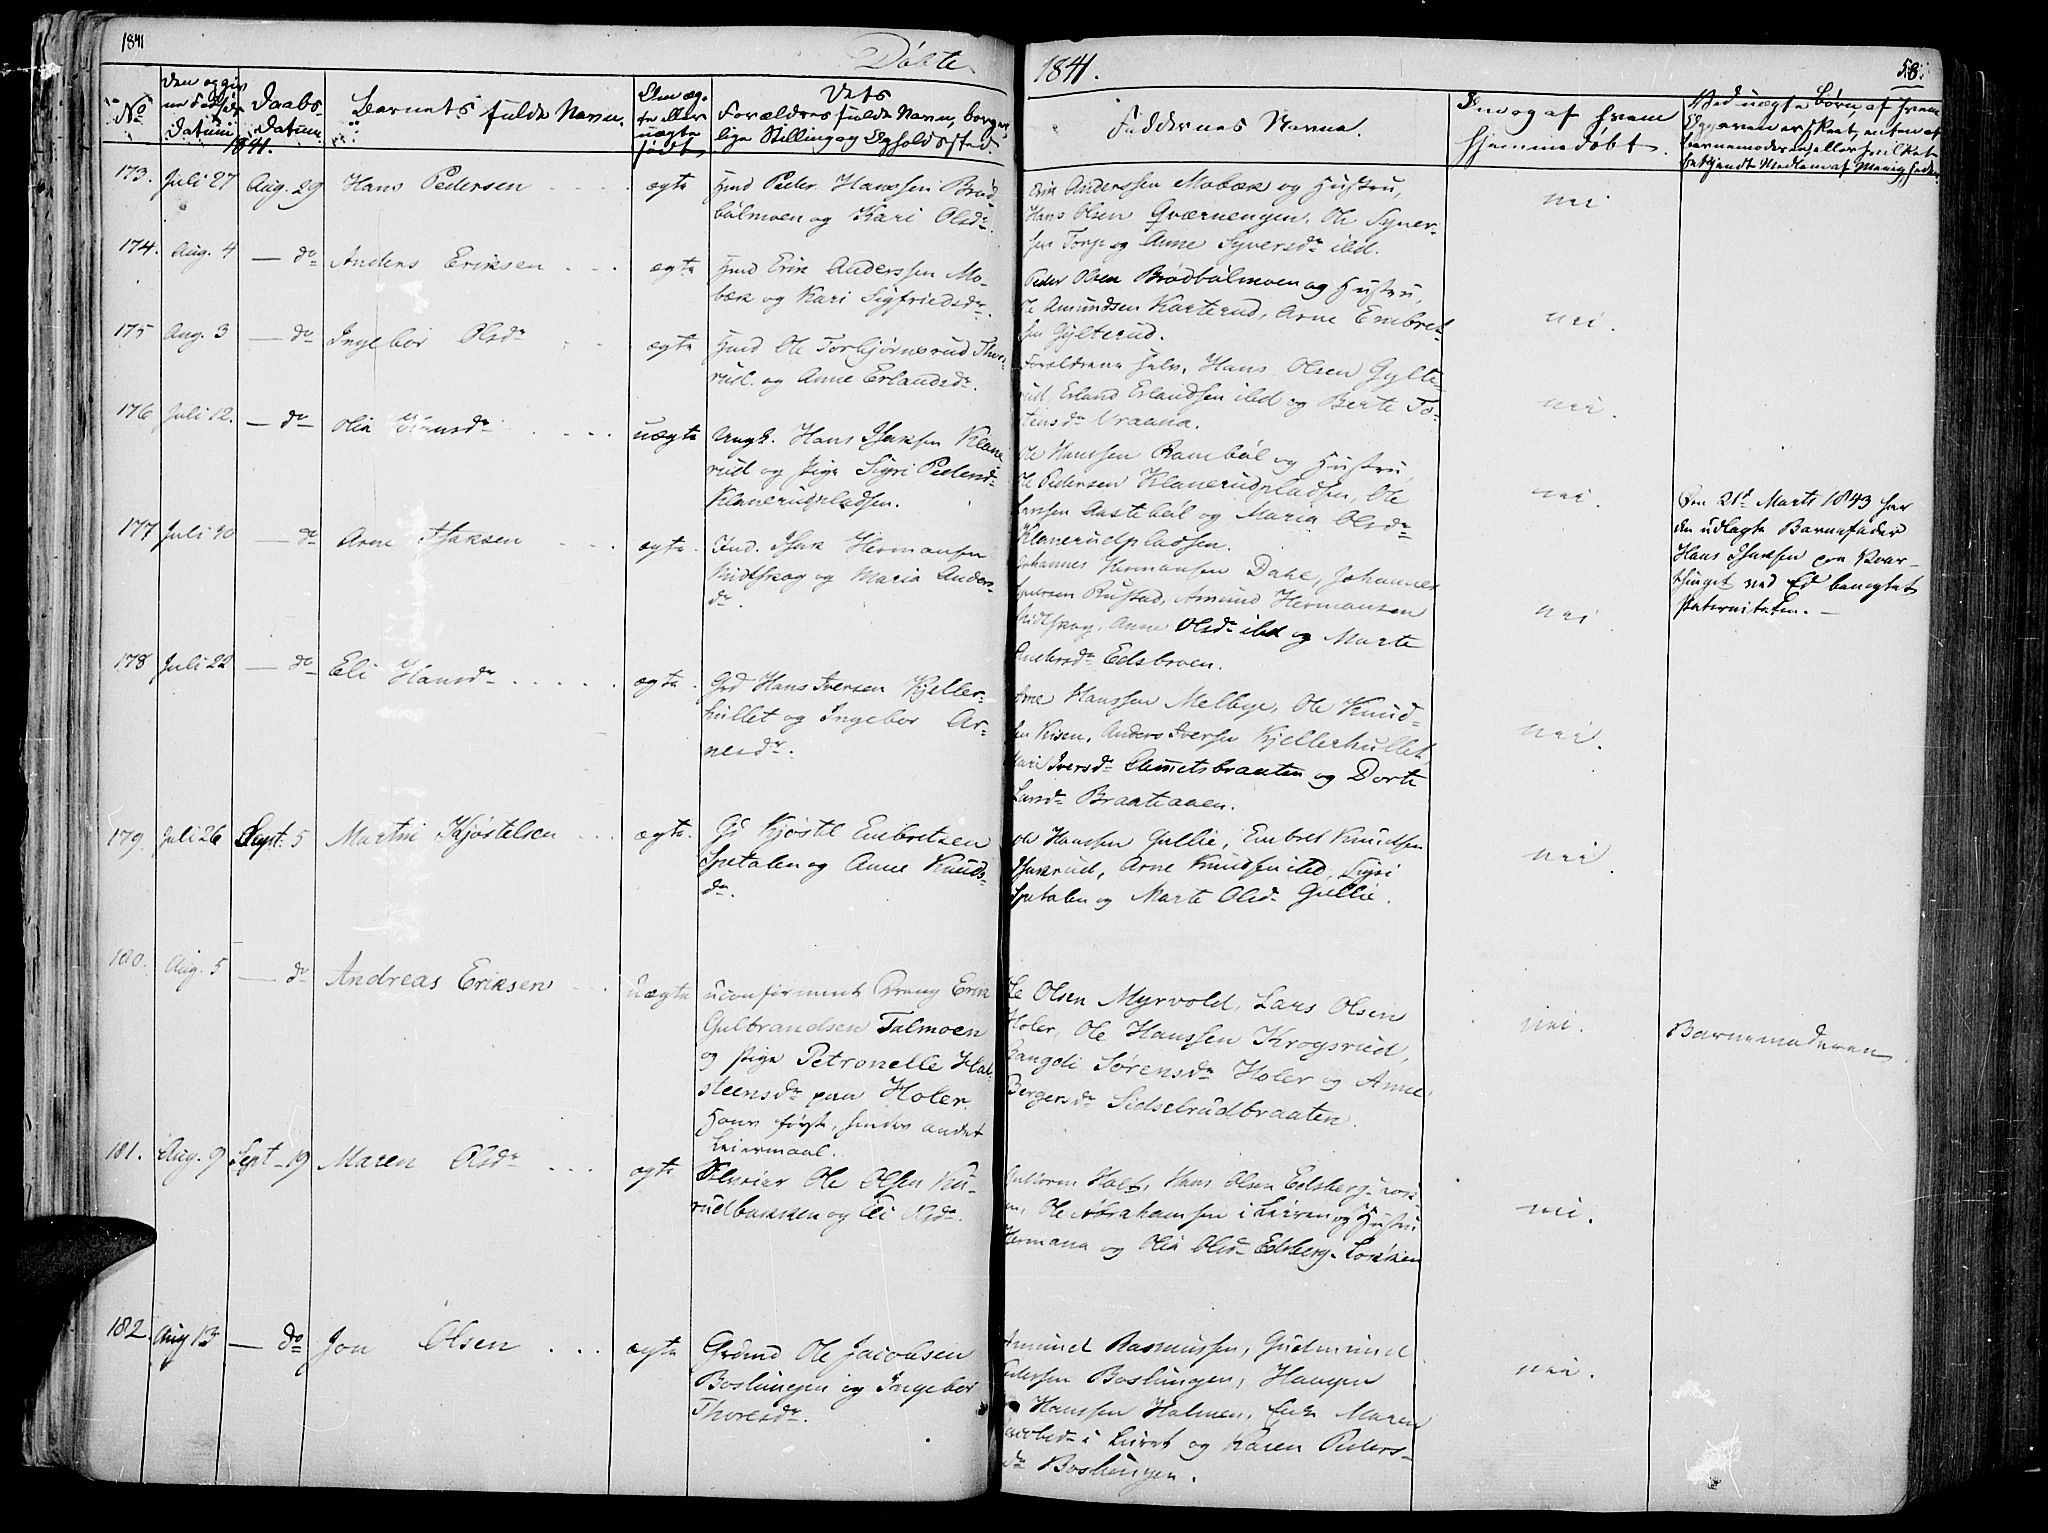 1841
Døbte
1841.
58.
No
Den opgivne Fødsels Datum 1841.
Daabs Datum
Barnets fulde Navn.
Om ægte eller uægte født,
Dets Forældres fulde Navn, borgerlige Stilling og Opholdssted.
Faddernes Navne.
Om og af hvem hjemmedøbt.
Ved uægte Børn, af hvem
173. Juli 27 Aug. 29 Hans Pedersen ægte Hmd Peder Hanssen Brød-
bølmoen og Kari Olsdr.
Erik Anderssen Mobæk og Hustru,
Hans Olsen Qværnengen, Ole Syver-
sen Torp og Anne Syversdr ibd.
nei
174. Aug. 4 — do Anders Eriksen ægte Hmd Erik Anderssen Mo-
bæk og Kari Sigfriedsdr.
Peder Olsen Brødbølmoen og Hustru,
Ole Amundsen Karterud, Arne Embret-
sen Gylterud.
nei.
175 Aug. 3 — do Ingebor Olsdr ægte Hmd Ole Torbjørnsrud Thor-
rud. og Anne Erlandsdr.
Forældrene selv, Hans Olsen Gylte-
rud, Erland Erlandsen ibd og Berte To-
stensdr Vraana.
nei.
176 Juli 12. — do Olia Hansdr uægte Ungk. Hans Isaksen Klane
rud og Pige Sigri Pedersdr
Klanerudpladsen.
Ole Hanssen Rambøl og Hustru,
Ole Pedersen Klanerudpladsen, Ole
Larssen Aastebøl og Maria Olsdr
Klanerudpladsen.
nei.
Den 21de Marts 1843 har
den udlagte Barnefader
Hans Isaksen paa Vaar-
thinget ved Ed benægtet
Paterniteten. —
177 Juli 10 — do Arne Isaksen ægte. Ind. Isak Hermansen
Midtskog og Maria Anders-
dr.
Johannes Hermansen Dahl, Johannes
Iversen Rustad, Amund Hermansen
Midtskog, Anne Olsdr ibd og Marte
Andersdr Edsbroen.
nei
178 Juli 22 — do Eli Hansdr ægte. Grd Hans Iversen Kjeller-
hullet og Ingebor Ar-
nesdr.
Arne Hanssen Melbye, Ole Knud-
sen Risen, Anders Iversen Kjellerhullet,
Kari Iversdr Aamotsbraaten og Dorte
Larsdr Braateaaen.
nei.
179. Juli 26 Sept. 5 Martin Kjøstelsen ægte. Gd Kjøstel Embretsen
Spetalen og Anne Knuds-
dr.
Ole Hanssen Gullie, Embret Knudsen
Isakrud, Arne Knudsen ibd, Sigri
Spetalen og Marte Olsdr Gullie.
nei
180. Aug. 5 — do Andreas Eriksen uægte uconfirmeret Dreng Erik
Gulbrandsen Talmoen
og Pige Petronelle Hal-
steensdr paa Holer.
Hans første, hendes andet
Leiermaal.
Ole Olsen Myrvold, Lars Olsen
Holer, Ole Hanssen Krogsrud,
Rangdi Sørensdr Holer og Anne
Bergersdr Sidselrudbraaten.
nei.
Barnemoderen
181. Aug. 9 Sept. 19 Maren Olsdr ægte Ole Olsen Ku-
rudbakken og Eli Olsdr.
Holt, Hans Olsen Edsberg-Loso-
en, Ole Abrahamsen i Leiren og Hustru
Hermana og Olia Olsdr Edsberg-
nei.
182. Aug 13 — do Jon Olsen ægte Grdmd Ole Jacobsen
Boslungen og Ingebor
Thoresdr.
Amund Rasmussen, Gudmund
Pedersen Boslungen, Haagen
Hanssen Holmen, Enke Maren
Jacobsdr i Leiret og Karen Peders-
dr Boslungen.
nei.